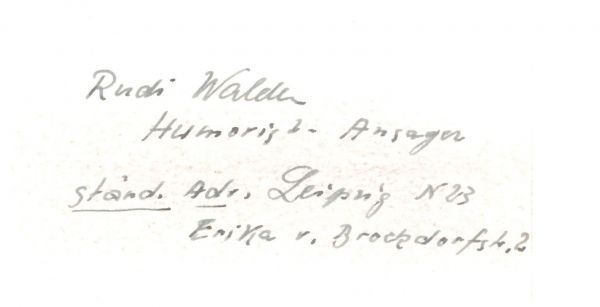 Rudi Walden
Humorist- Ansager
ständ. Adr. Leipzig N23
Erika v. Brockdorfstr. 2